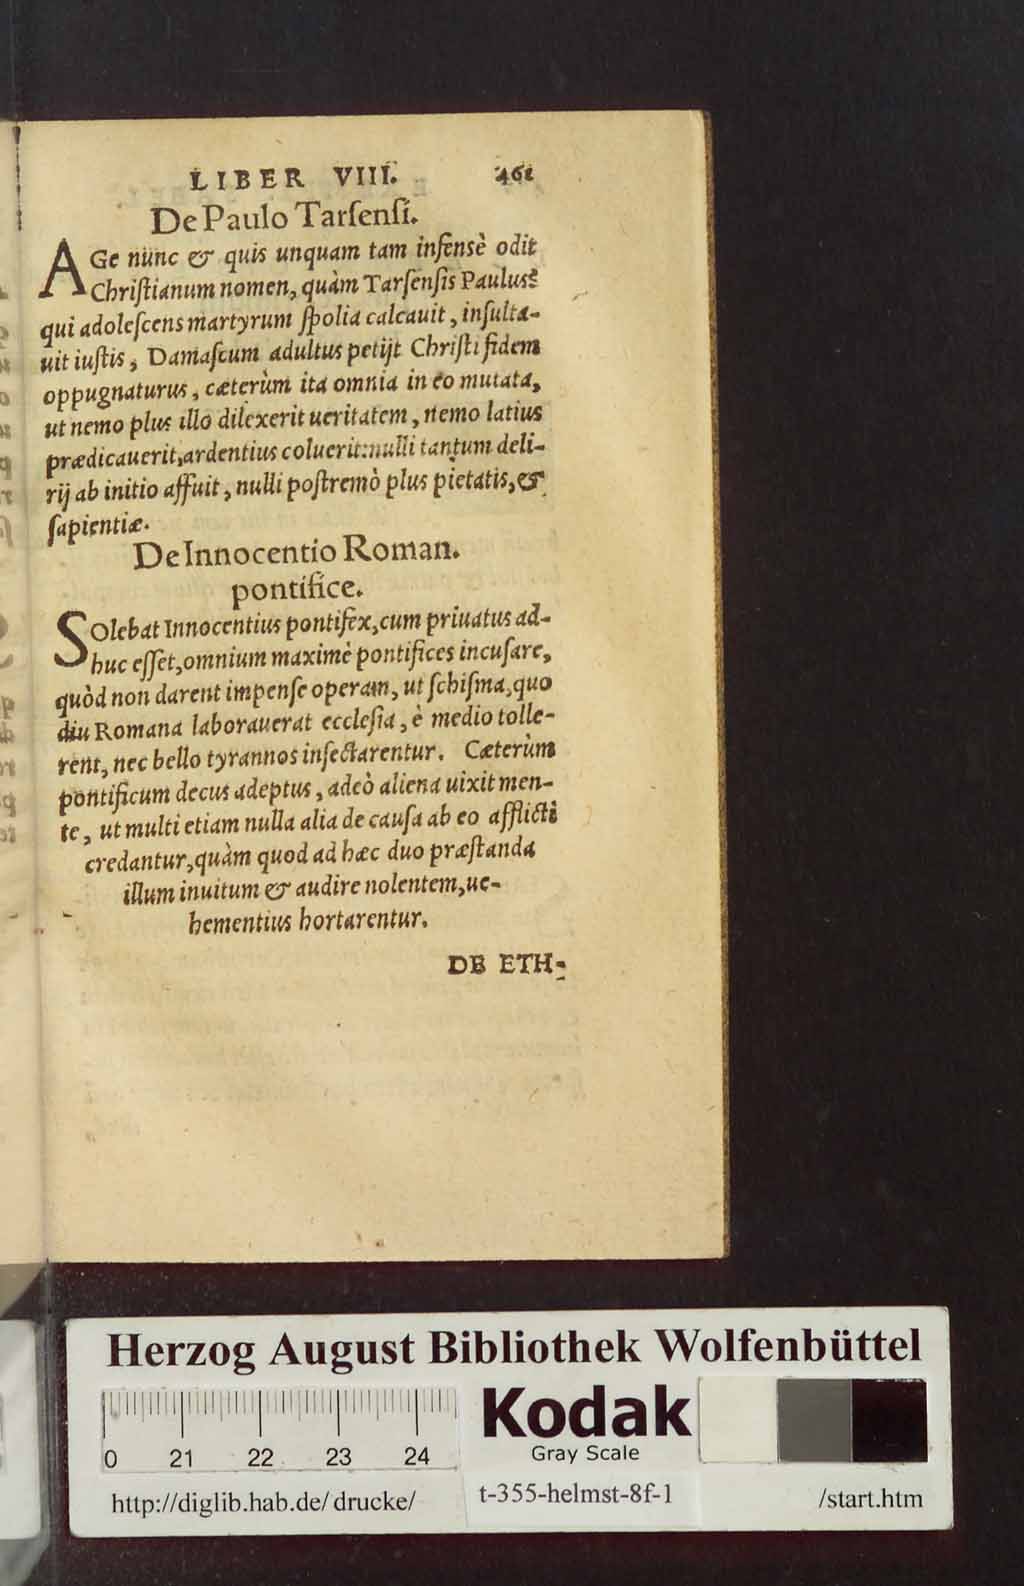 LIBER VIII. 461
De Paulo Tarſenſi.
AGe nunc & quis unquam tam infensè odit
Chriſtianum nomen, quàm Tarſenſis Paulus?
qui adoleſcens martyrum ſpolia calcauit, inſulta-
uit iuſtis, Damaſcum adultus petijt Chriſti fidem
oppugnaturus, cæterùm ita omnia in eo mutata,
ut nemo plus illo dilexerit ueritatem, nemo latius
prædicauerit, ardentius coluerit: nulli tantum deli-
rij ab initio affuit, nulli poſtremò plus pietatis, &
ſapientiæ.
De Innocentio Roman.
pontifice.
SOlebat Innocentius pontifex, cum priuatus ad-
huc eſſet, omnium maximè pontifices incuſare,
quòd non darent impenſe operam, ut ſchiſma, quo
diu Romana laborauerat eccleſia, è medio tolle-
rent, nec bello tyrannos inſectarentur. Cæterùm
pontificum decus adeptus, adeò aliena uixit men-
te, ut multi etiam nulla alia de cauſa ab eo afflicti
credantur, quàm quod ad hæc duo præſtanda
illum inuitum & audire nolentem, ue-
hementius hortarentur.
DE ETH-
Herzog August Bibliothek Wolfenbüttel
0 21 22 23 24
Kodak
Gray Scale
http://diglib.hab.de/drucke/ t-355-helmst-8f-1 /start.htm